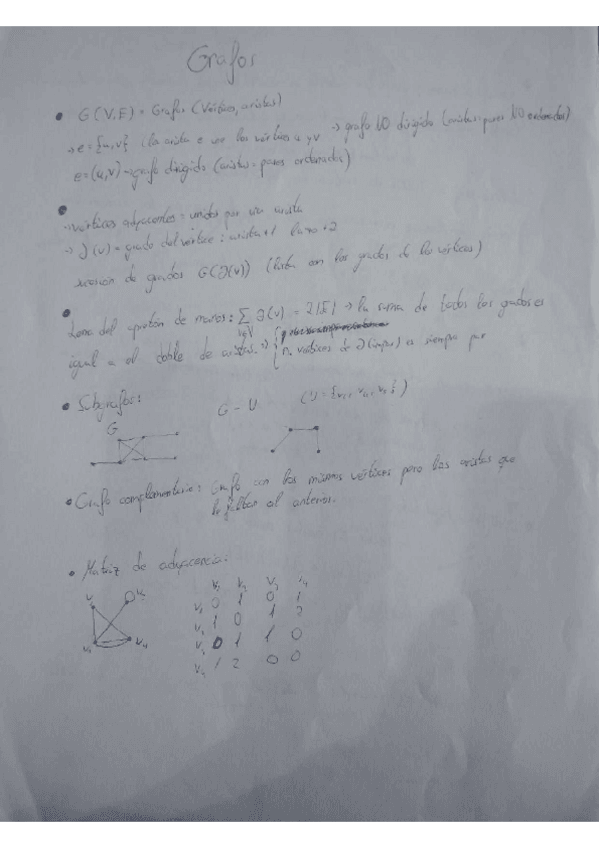 Grafos
• G(V,E) = Grafos (Vértices, aristas)
→ e = {u,v} (la arista e une los vértices u y v → grafo NO dirigido (aristas = pares NO ordenados)
e = (u,v) → grafo dirigido (aristas = pares ordenados)
•
→ vértices adyacentes = unidos por una arista
→ ∂(v) = grado del vértice: arista +1 lazo +2
sucesión de grados G(∂(v)) (lista con los grados de los vértices)
•
Lema del apretón de manos: ∑ ∂(v) = 2|E| → la suma de todos los grados es
v∈V
igual a el doble de aristas. → nº vértices de ∂(impar) es siempre par
• Subgrafos: G - U (U = {
G
• Grafo complementario: Grafo con los mismos vértices pero las aristas que
le faltan al anterior.
• Matriz de adyacencia:
V₁ V₂ V₃ V₄
V₁ 0 1 0 1
V₂ 1 0 1 2
0 1 1 0
1 2 0 0